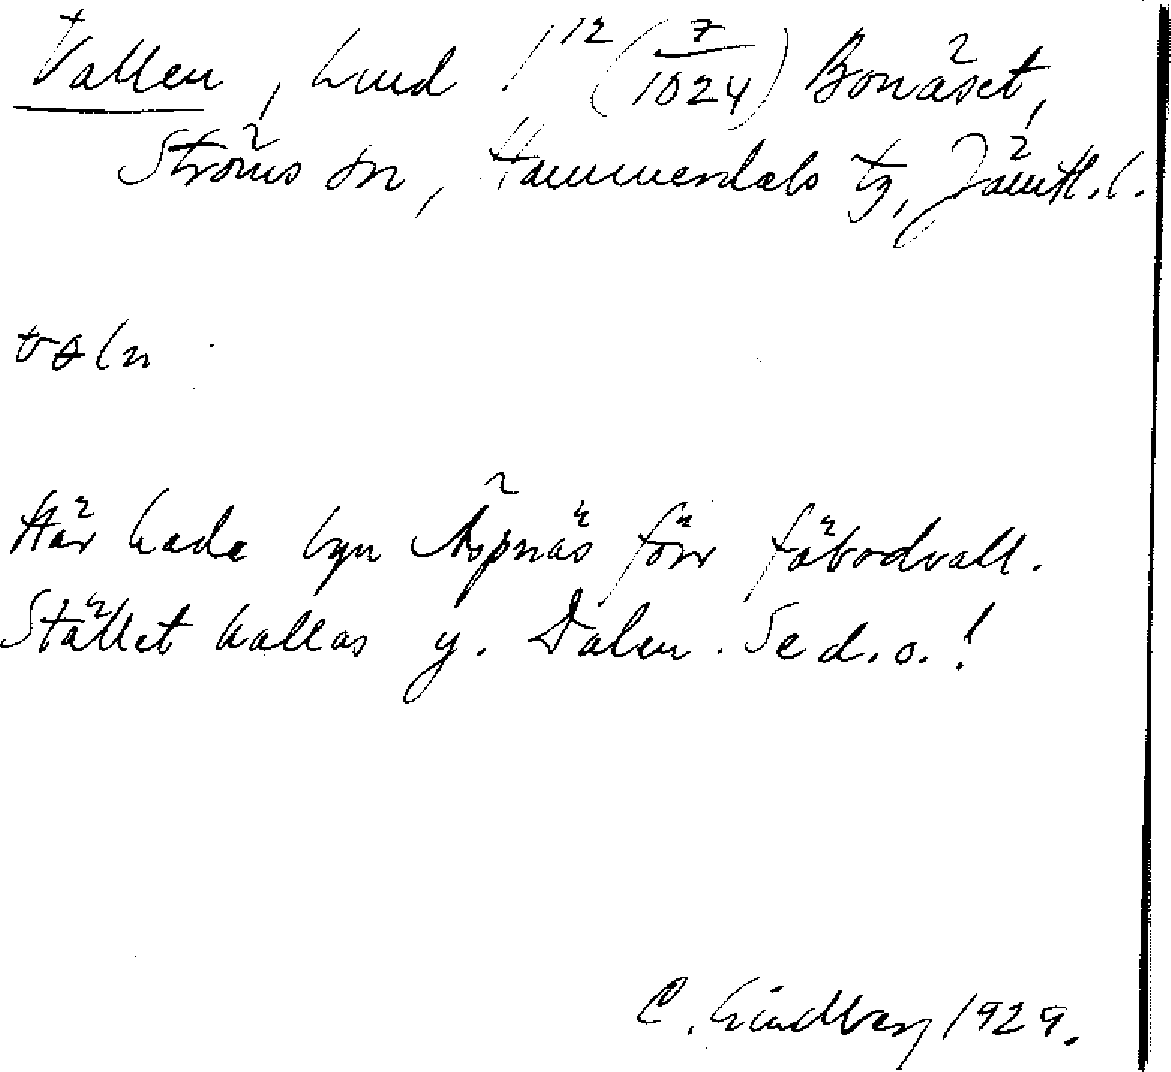 Vallen, hmd 1¹² (7/1024) Bonäset,
Ströms sn, Hammerdals tg, Jämtl. l.
valn
Här hade byn Äspnäs förr fäbodvall.
Stället kallas y. Dalen. Se d. o.!
C. Lindberg 1929.